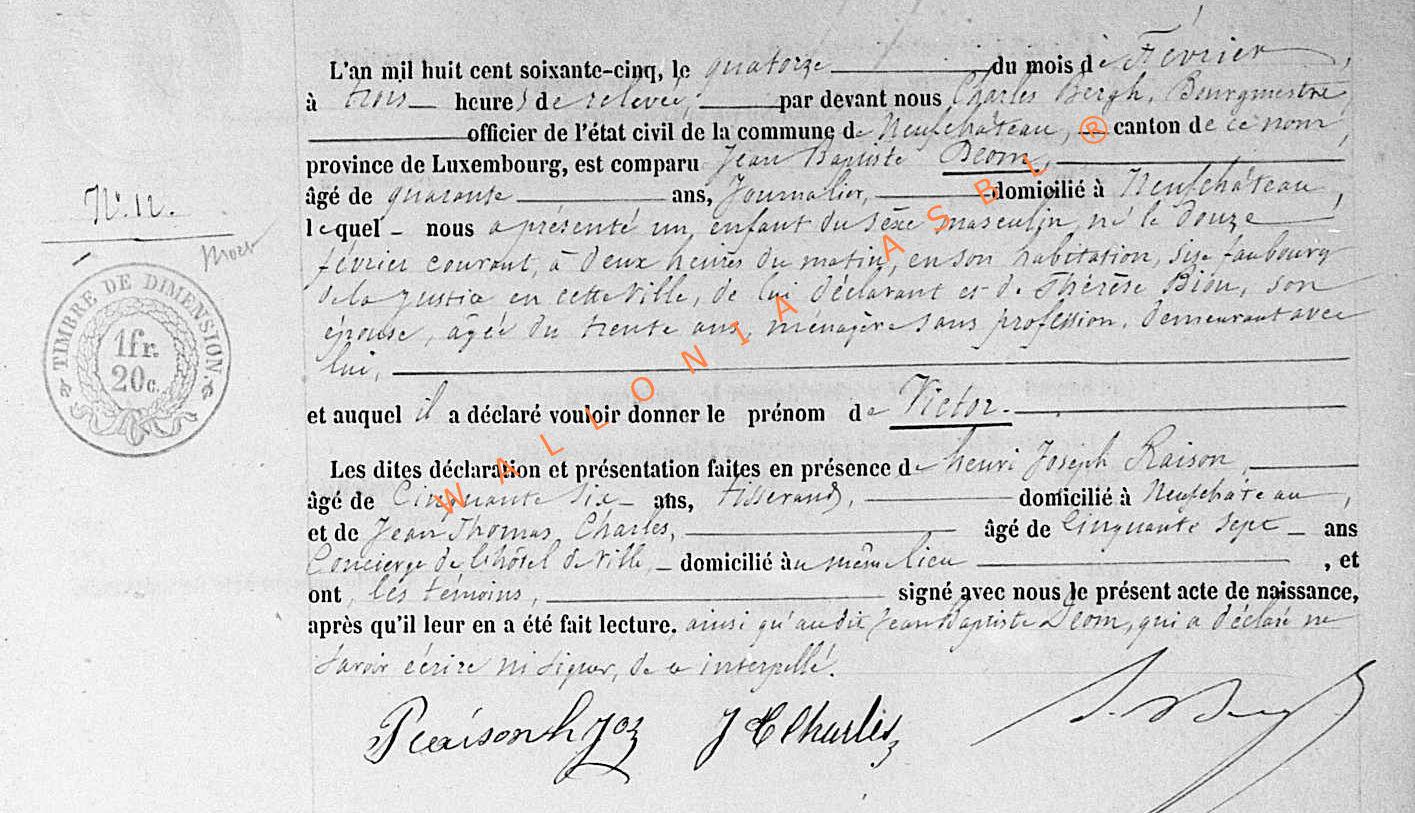 L'an mil huit cent soixante-cinq, le quatorze du mois de Février,
à trois heures de relevée, par devant nous Charles Bergh, Bourgmestre,
officier de l'état civil de la commune de Neufchâteau, canton de ce nom,
province de Luxembourg, est comparu Jean Baptiste Déom,
N°. 12.
âgé de quarante ans, Journalier, domicilié à Neufchâteau,
lequel nous a présenté un enfant du sexe masculin, né le douze
février courant, à deux heures du matin, en son habitation, sise faubourg
de la Justice en cette ville, de lui déclarant et de Thérèse Bion, son
épouse, âgée du trente ans, ménagère sans profession, demeurant avec
lui,
TIMBRE DE DIMENSION.
1 fr.
20 c.
et auquel il a déclaré vouloir donner le prénom de Victor.
Les dites déclaration et présentation faites en présence de henri Joseph Raison,
âgé de Cinquante six ans, tisserand, domicilié à Neufchâteau,
et de Jean Thomas Charles, âgé de Cinquante sept ans
Concierge de l'hôtel de Ville, domicilié au même lieu , et
ont, les témoins, signé avec nous le présent acte de naissance,
après qu'il leur en a été fait lecture. ainsi qu'audit Jean Baptiste Déom, qui a déclaré ne
savoir écrire ni signer, de ce interpellé.
Raison h Joz J T Charles
WALLONIA ASBL ®